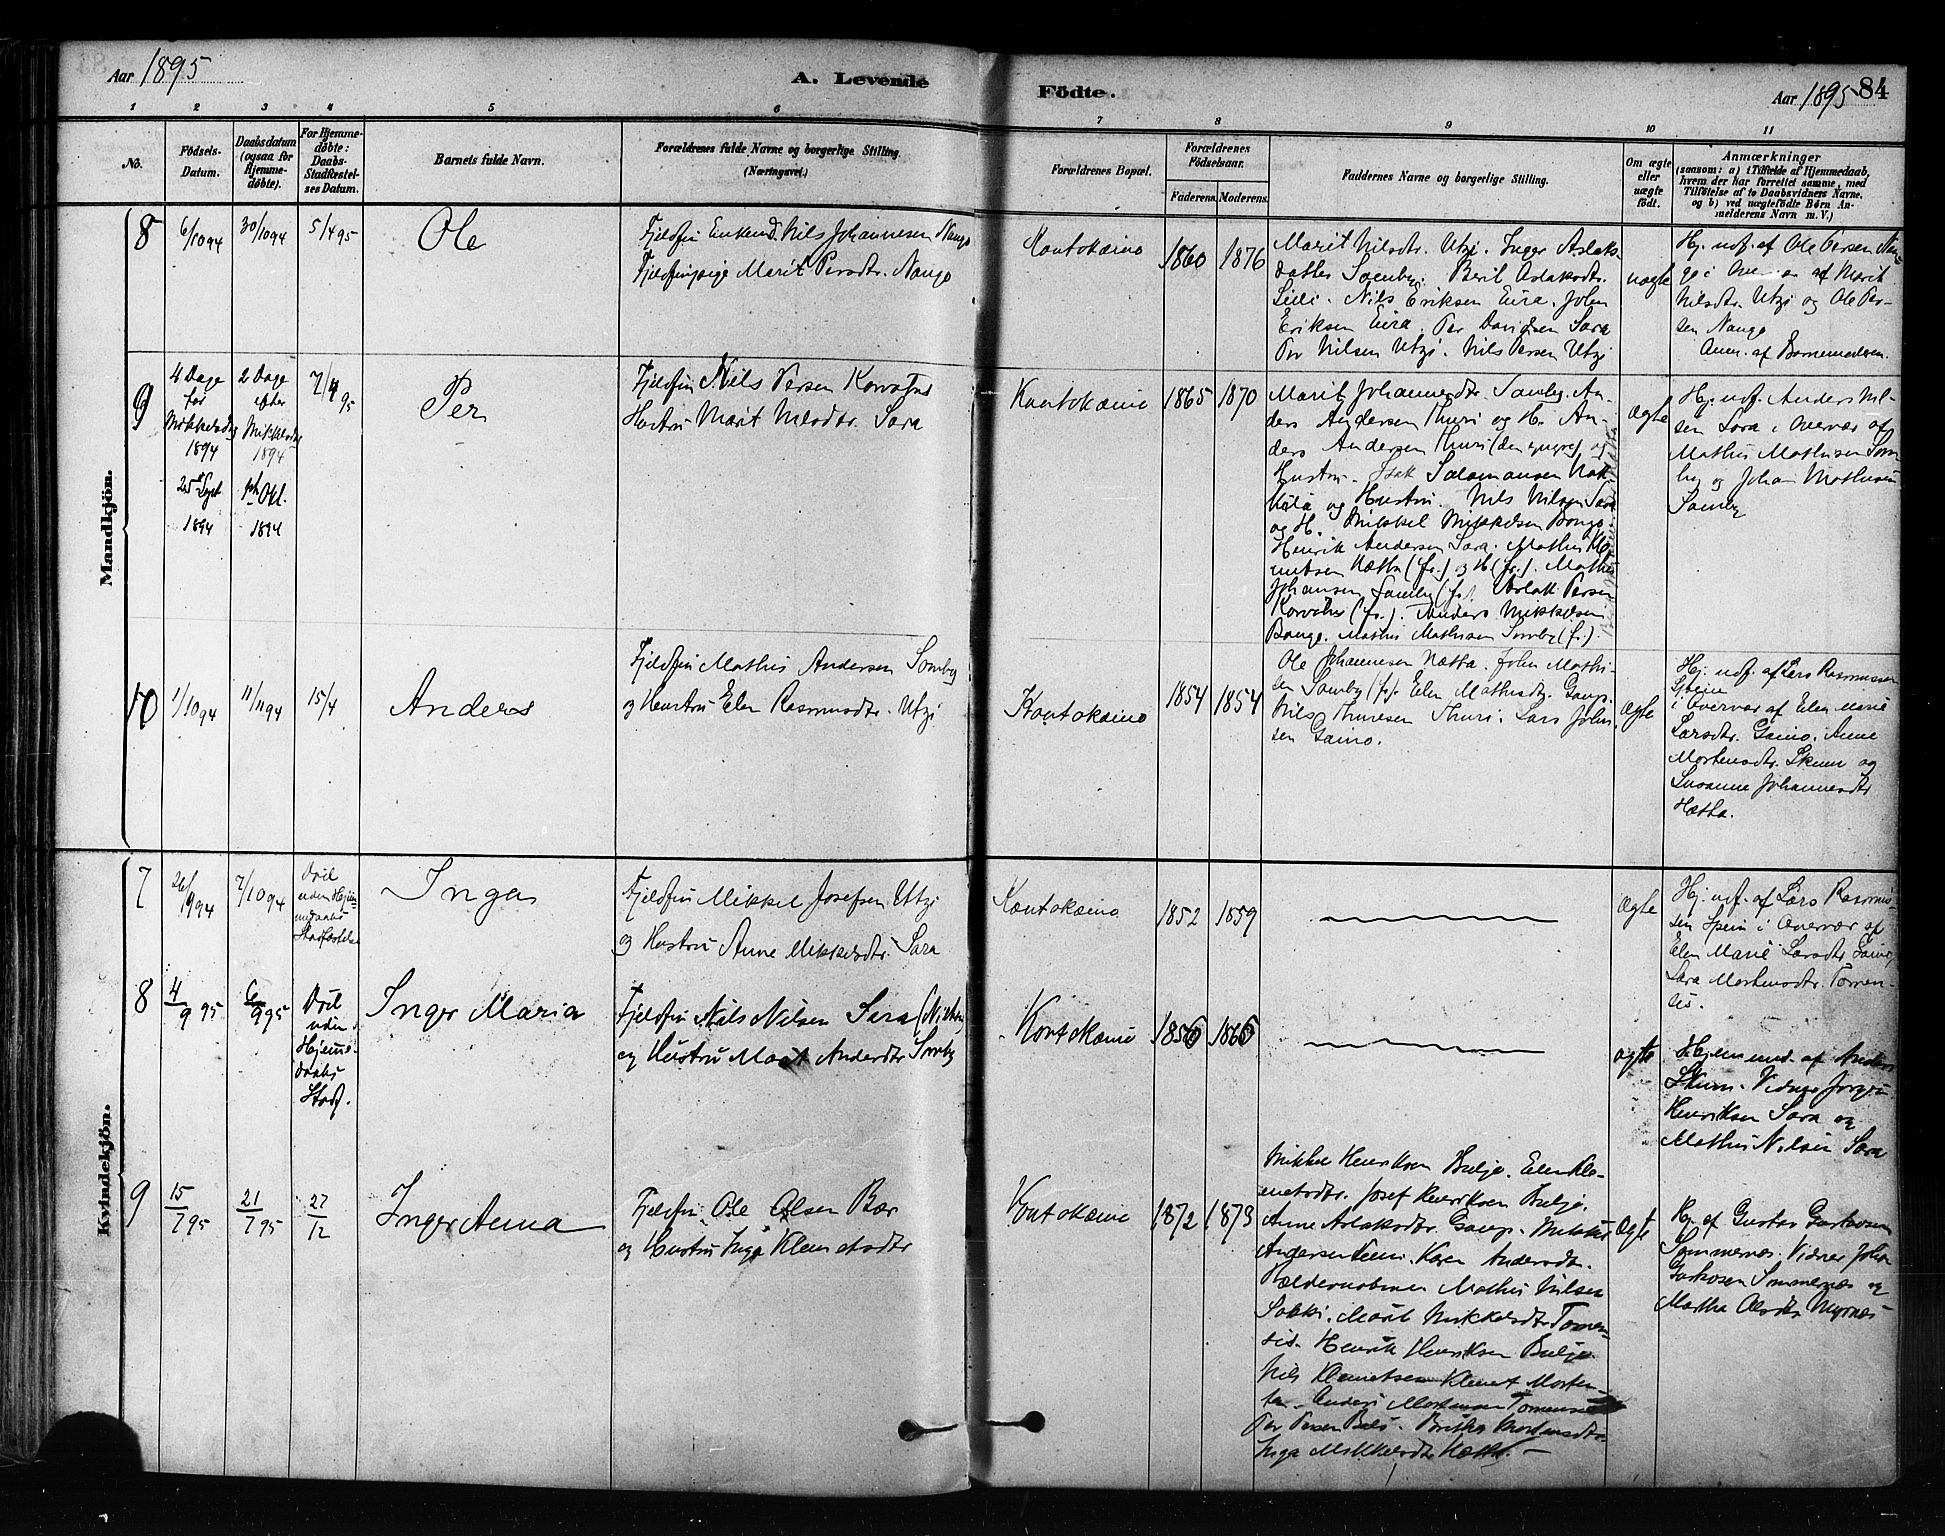 Aar 1895
A. Levende
Födte.
Aar 1895 84
1 2 3 4 5 6 7 8 9 10 11
No.
Födsels-
Datum.
Daabsdatum
(ogsaa for
Hjemme-
döbte).
For Hjemme-
döbte:
Daabs-
Stadfæstel-
ses Datum.
Barnets fulde Navn.
Forældrenes fulde Navne og borgerlige Stilling.
(Næringsvei.)
Forældrenes Bopæl.
Forældrenes
Födselsaar.
Faderens. Moderens.
Faddernes Navne og borgerlige Stilling.
Om ægte
eller
uægte
födt.
Anmærkninger
(saasom: a) i Tilfælde af Hjemmedaab,
hvem der har forrettet samme, med
Tilföielse af to Daabsvidners Navne,
og b) ved uægtefödte Börn An-
melderens Navn m. V.)
Mandkjön.
8
6/10 94
30/10 94
5/4 95
Ole
Fjeldfin Enkem. Nils Johannesen Nango
Fjeldfinpige Marit Persdtr. Nango
Kautokeino
1860 1876
Marit Nilsdtr. Utzi. Inger Aslaks-
datter Somby. Berit Aslaksdtr.
Nils Eriksen Eira. John
Eriksen Eira. Per Davidsen Sara
Per Nilsen Utzi. Nils Persen Utzi
uægte
Hj. udf. af Ole Persen Nan-
go i Overvær af Marit
Nilsdtr. Utzi og Ole Per-
sen Nango
Anm. af Barnemoderen.
9
4 Dage
før
Mikkelsdag
1894
25 Sept
1894
2 Dage
efter
Mikkelsdag
1894
1ste Okt.
1894
7/4 95
Per
Fjeldfin Nils Persen Korvatus
Hustru Marit Nilsdtr. Sara
Kautokeino
1865 1870
Marit Johannesdtr. Somby. An-
ders Andersen Thuri og H. An-
ders Andersen Thuri (den yngre) og
Hustru. Isak Salamonsen Nak-
kila og Hustru. Nils Nilsen Sara
og H. Mikkel Mikkelsen Bongo.
Henrik Andersen Sara. Mathis Kle-
metsen Hætta (fr.) og H (fr.). Mathis
Johansen Somby (fr.) Aslak Persen
Korvatus (fr.). Anders Mikkelsen
Bongo. Mathis Mathisen Somby (fr.).
ægte
Hj. udf. Anders Nil-
sen Sara i Overvær af
Mathis Mathisen Som-
by og Johan Mathisen
Somby
10
1/10 94
11/11 94
15/4
Anders
Fjeldfin Mathis Andersen Somby
og Hustru Elen Rasmusdtr. Utzi
Kautokeino
1854 1854
Ole Johannesen Hætta. John Mathi-
sen Somby (fr). Elen Mathisdtr. Gaup.
Nils Thuresen Thuri. Lars Johan-
sen Gaino.
Ægte
Hj. udf. af Lars Rasmussen
Spein
i Overvær af Elen Marie
Larsdtr. Gaino. Anne
Mortensdtr. Skum og
Susanne Johannesdtr
Hætta.
Kvindekjön.
7
26/9 94
7/10 94
Død
uden Hjem-
medaabs
Stadfæstelse
Inga
Fjeldfin Mikkel Josefsen Utzi
og Hustru Anne Mikkelsdtr. Sara
Kautokeino
1852 1859
Ægte
Hj. udf. af Lars Rasmus-
sen Spein i Overvær af
Elen Marie Larsdtr Gaino,
Sara Mortensdtr. Tornen-
sis.
8
4/9 95
6/9 95
Død
uden
Hjemme-
daabs
Stadf.
Inger Maria
Fjeldfin Nils Nilsen Sara
og Hustru Marit Andersdtr Somby
Kautokeino
1856 1866
ægte
Hjemmed. af Anders
Skum. Vidner Jørgen
Henriksen Sara og
Mathis Nilsen Sara
9
15/7 95
21/7 95
27/12
Inger Anna
Fjeldfin Ole Olsen Bær
og Hustru Inga Klemetsdtr
Kautokeino
1872 1873
Mikkel Henriksen Buljo. Elen Kle-
metsdtr. Josef Henriksen Buljo.
Anne Aslaksdtr. Gaup. Mikkel
Andersen. Karen Andersdtr.
Mathis Nilsen
Marit Mikkelsdtr Tornen-
sis. Henrik Henriksen Buljo
Nils Klemetsen Klemet Morten-
sen. Anders Mortensen Tornensis
Per Persen. Britha Mortensdtr.
Inga Mikkelsdtr Hætta.
Ægte
Hj. af Gustav
Sommernæs. Vidner Johan
Sommernæs og
Martha Olsdtr Myrnæs